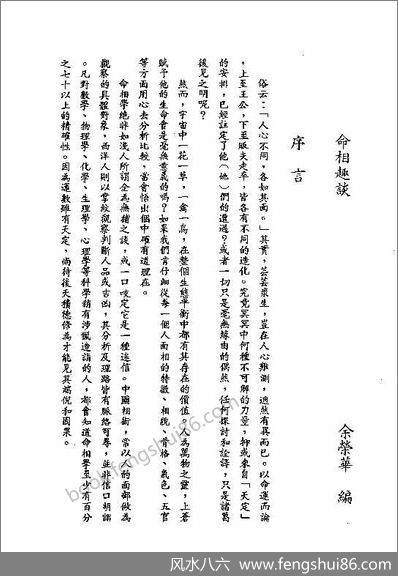 命相趣談
余榮華 編
序言
俗云:「人心不同,各如其面。」其實,芸芸眾生,豈在人心難測,迥然有異而已。以命運而論
,上至王公,下至販夫走卒,皆各有不同的造化。究竟冥冥中何種不可解的力量,抑或來自「天定」
的安排,已經註定了他(她)們的遭遇?或者一切只是毫無緣由的偶然,任何探討和詮釋,只是諸葛
後見之明呢?
然而,宇宙中一花一草,一禽一鳥,在整個生態平衡中都有其存在的價值,人為萬物之靈,上蒼
賦予他的生命會是毫無意義的嗎?如果我們肯仔細從每一個人面相的特徵、相貌、骨格、氣色、五官
等方面用心去分析比較,當會悟出個中頗有道理在。
命相學絕非如淺人所謂全為無稽之談,或一口咬定它是一種迷信。中國相術,常以人的面部做為
觀察的具體對象,西洋人則以掌紋觀察判斷人品或吉凶,其分析及理路皆有脈絡可尋,並非信口胡謅
。凡對數學、物理學、化學、生理學、心理學等科學稍有涉獵造詣的人,都會知道命相學至少有百分
之七十以上的精確性。因為運數雖有天定,尚待後天積德修為才能見其端倪和因果。
book.fengshui86.com
风水八六 - www.fengshui86.com